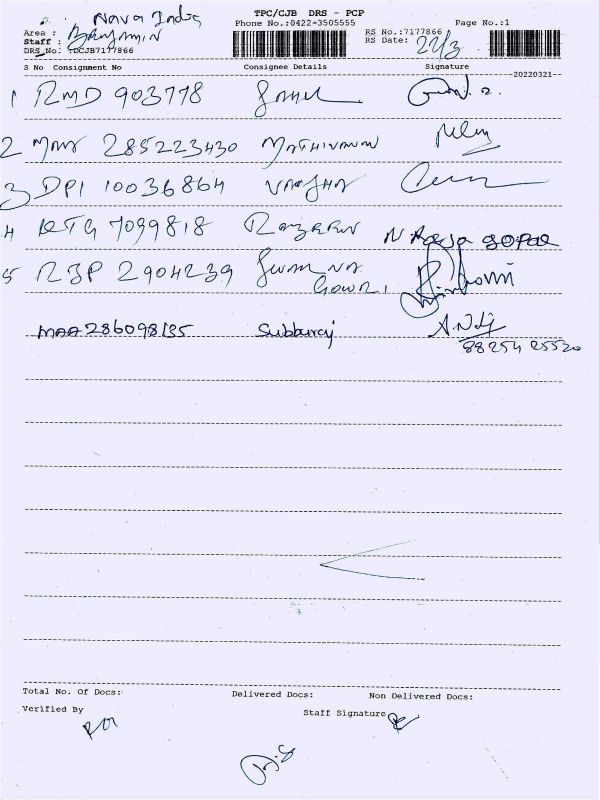 TPC/CJB DRS - PCP
Nava India
Phone No.:0422-3505555 Page No.:1
Area :
RS No.:7177866
Staff : Benjamin
RS Date: 22/3
DRS No. :DCJB7177866
S No Consignment No Consignee Details Signature
-20220321-
1 RMD 903778
2 285223430 MATHIVANAN
3 DPI 10036864 VARSHA
4 KTG 7099818 N RAJA GOPAL
5 RJP 2904239 Swarna Gowri
MAA 286098135 Subburaj
88254 25520
Total No. Of Docs: Delivered Docs: Non Delivered Docs:
Verified By Staff Signature